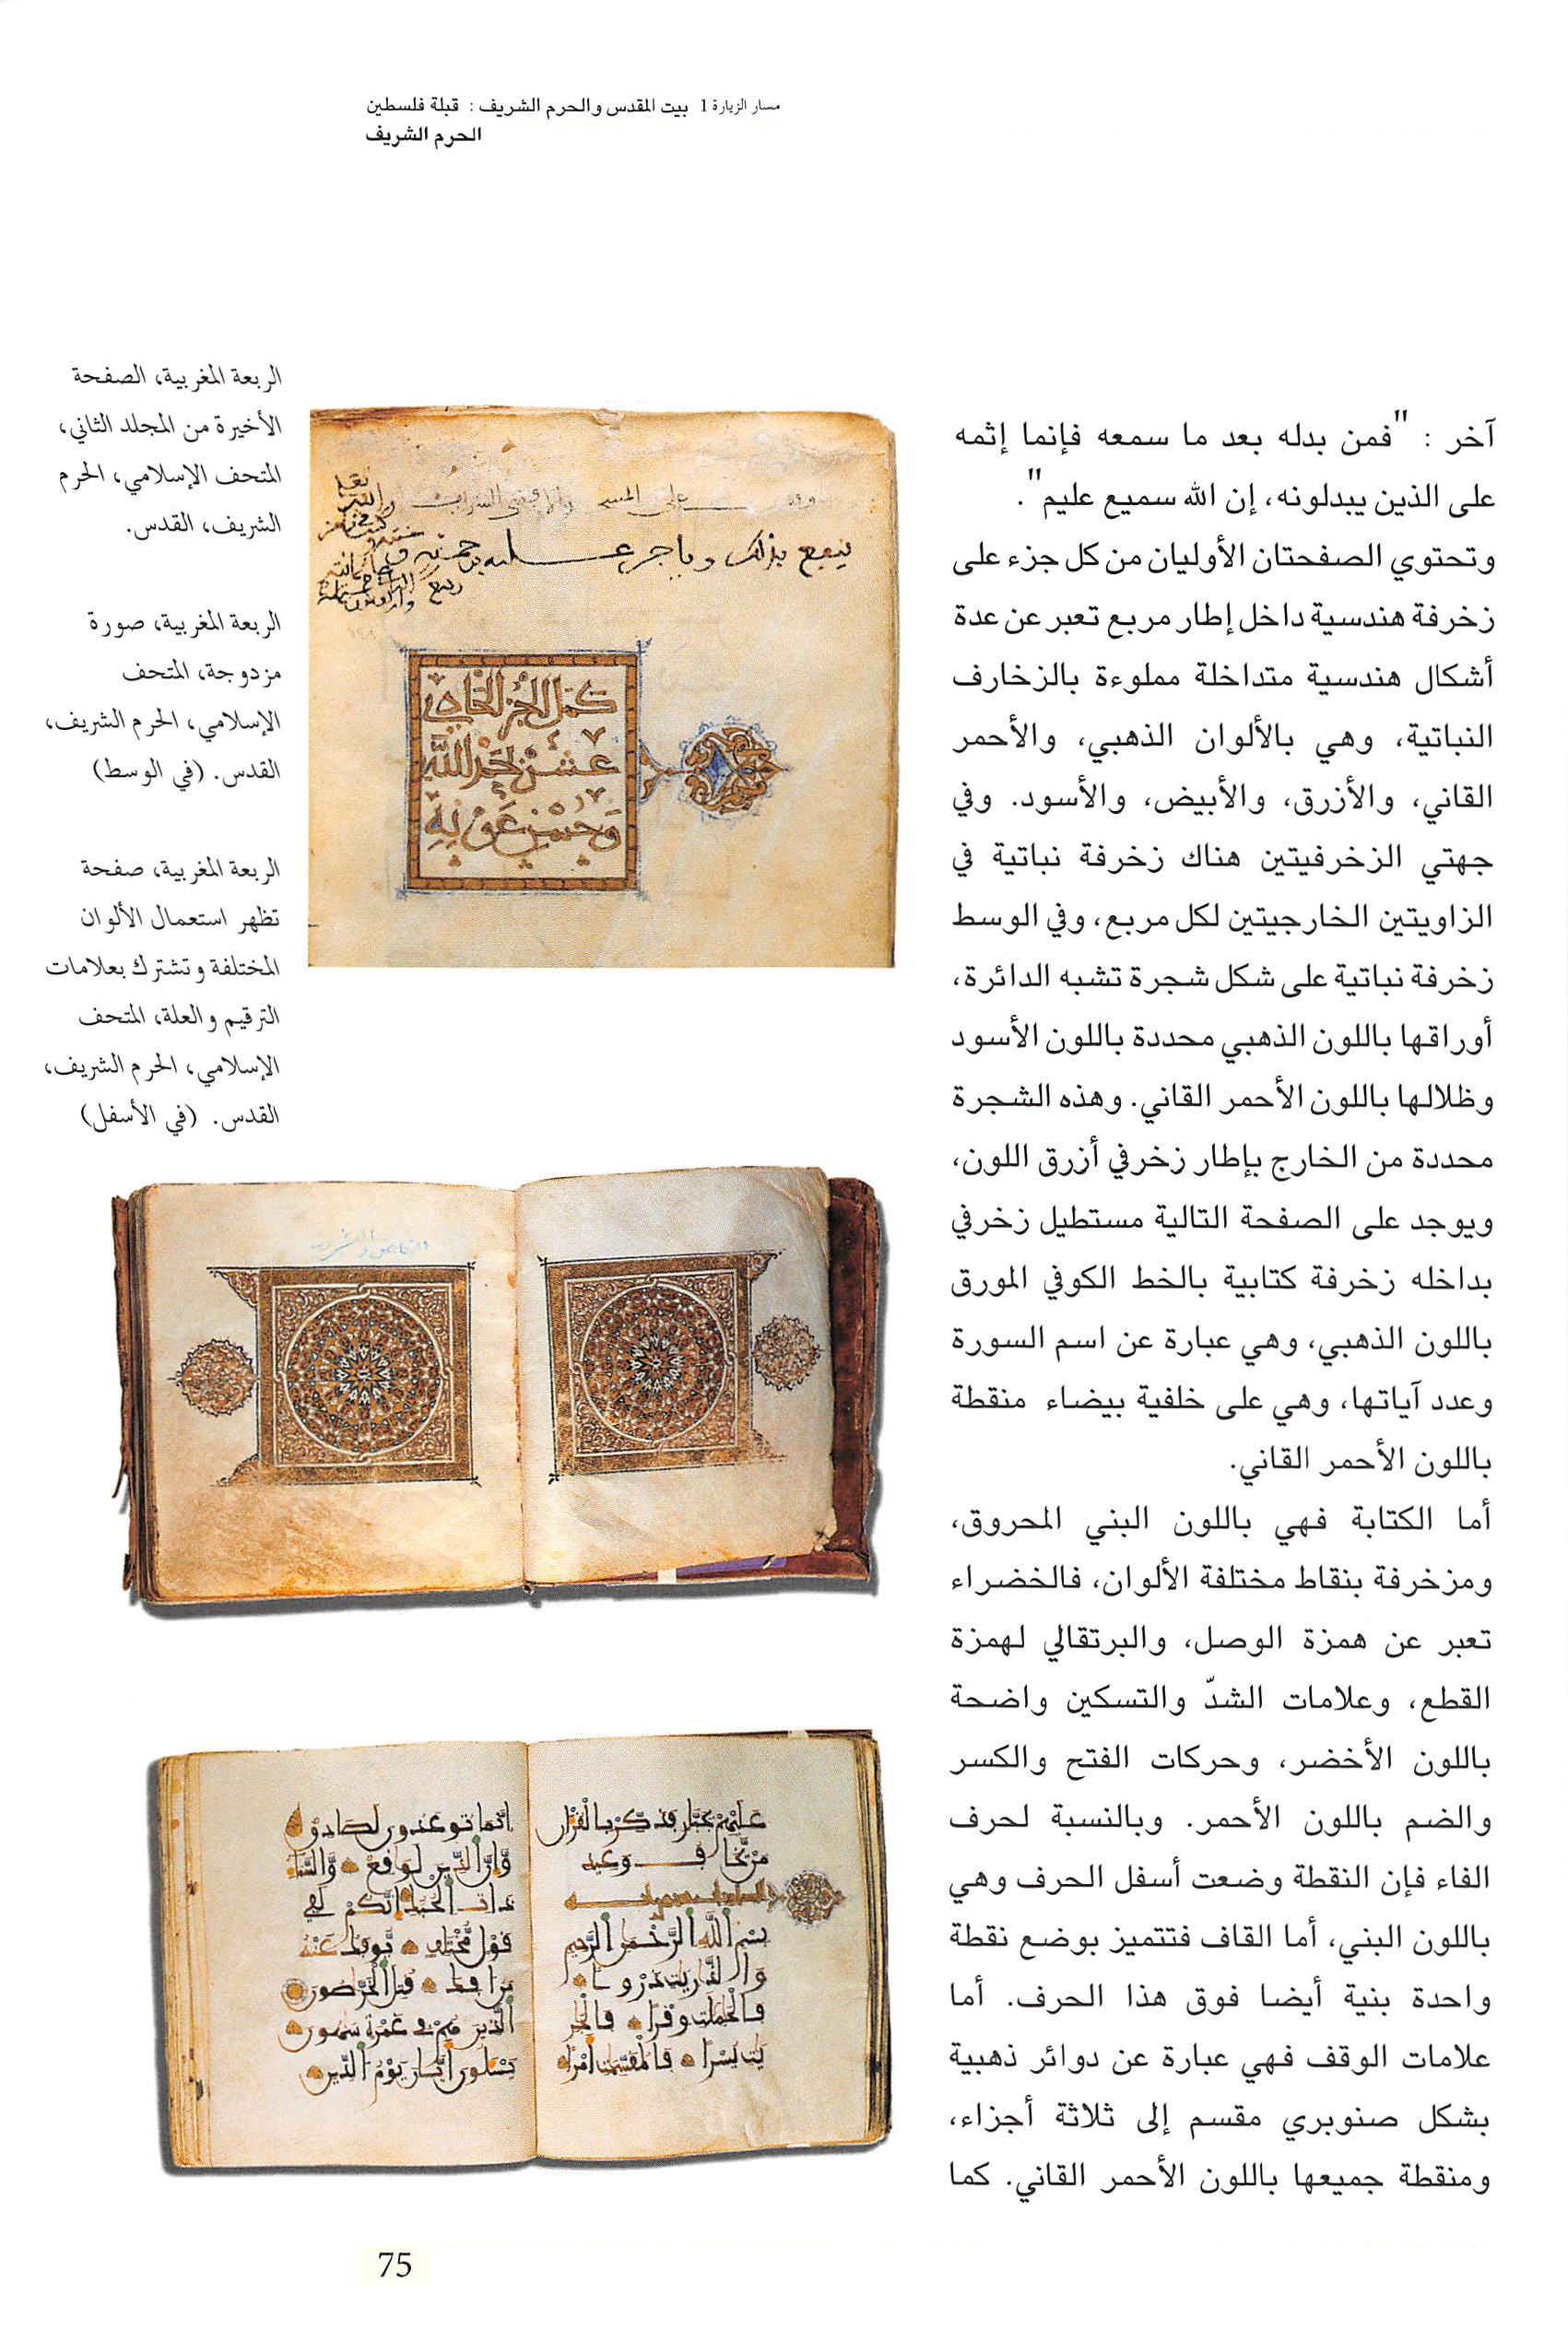 مسار الزيارة 1 بيت المقدس والحرم الشريف : قبلة فلسطين
الحرم الشريف
آخر : "فمن بدله بعد ما سمعه فإنما إثمه
على الذين يبدلونه، إن الله سميع عليم".
وتحتوي الصفحتان الأوليان من كل جزء على
زخرفة هندسية داخل إطار مربع تعبر عن عدة
أشكال هندسية متداخلة مملوءة بالزخارف
النباتية، وهي بالألوان الذهبي، والأحمر
القاني، والأزرق، والأبيض، والأسود. وفي
جهتي الزخرفيتين هناك زخرفة نباتية في
الزاويتين الخارجيتين لكل مربع، وفي الوسط
زخرفة نباتية على شكل شجرة تشبه الدائرة،
أوراقها باللون الذهبي محددة باللون الأسود
وظلالها باللون الأحمر القاني. وهذه الشجرة
محددة من الخارج بإطار زخرفي أزرق اللون،
ويوجد على الصفحة التالية مستطيل زخرفي
بداخله زخرفة كتابية بالخط الكوفي المورق
باللون الذهبي، وهي عبارة عن اسم السورة
وعدد آياتها، وهي على خلفية بيضاء منقطة
باللون الأحمر القاني.
أما الكتابة فهي باللون البني المحروق،
ومزخرفة بنقاط مختلفة الألوان، فالخضراء
تعبر عن همزة الوصل، والبرتقالي لهمزة
القطع، وعلامات الشدّ والتسكين واضحة
باللون الأخضر، وحركات الفتح والكسر
والضم باللون الأحمر. وبالنسبة لحرف
الفاء فإن النقطة وضعت أسفل الحرف وهي
باللون البني، أما القاف فتتميز بوضع نقطة
واحدة بنية أيضا فوق هذا الحرف. أما
علامات الوقف فهي عبارة عن دوائر ذهبية
بشكل صنوبري مقسم إلى ثلاثة أجزاء،
ومنقطة جميعها باللون الأحمر القاني. كما
الربعة المغربية، الصفحة
الأخيرة من المجلد الثاني،
المتحف الإسلامي، الحرم
الشريف، القدس.
الربعة المغربية، صورة
مزدوجة، المتحف
الإسلامي، الحرم الشريف،
القدس. (في الوسط)
الربعة المغربية، صفحة
تظهر استعمال الألوان
المختلفة وتشترك بعلامات
الترقيم والعلة، المتحف
الإسلامي، الحرم الشريف،
القدس. (في الأسفل)
كمل الجزء الحادي
عشر بحمد الله
وحسن عونه
بسم الله الرحمن الرحيم
75